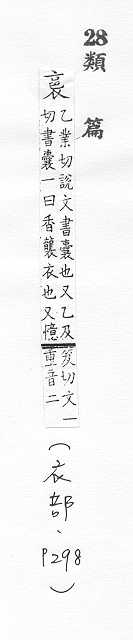 28類篇
裛
乙業切說文書囊也又乙及
切書囊一曰香襲衣也又憶
笈切文一
重音二
(衣部、P298)